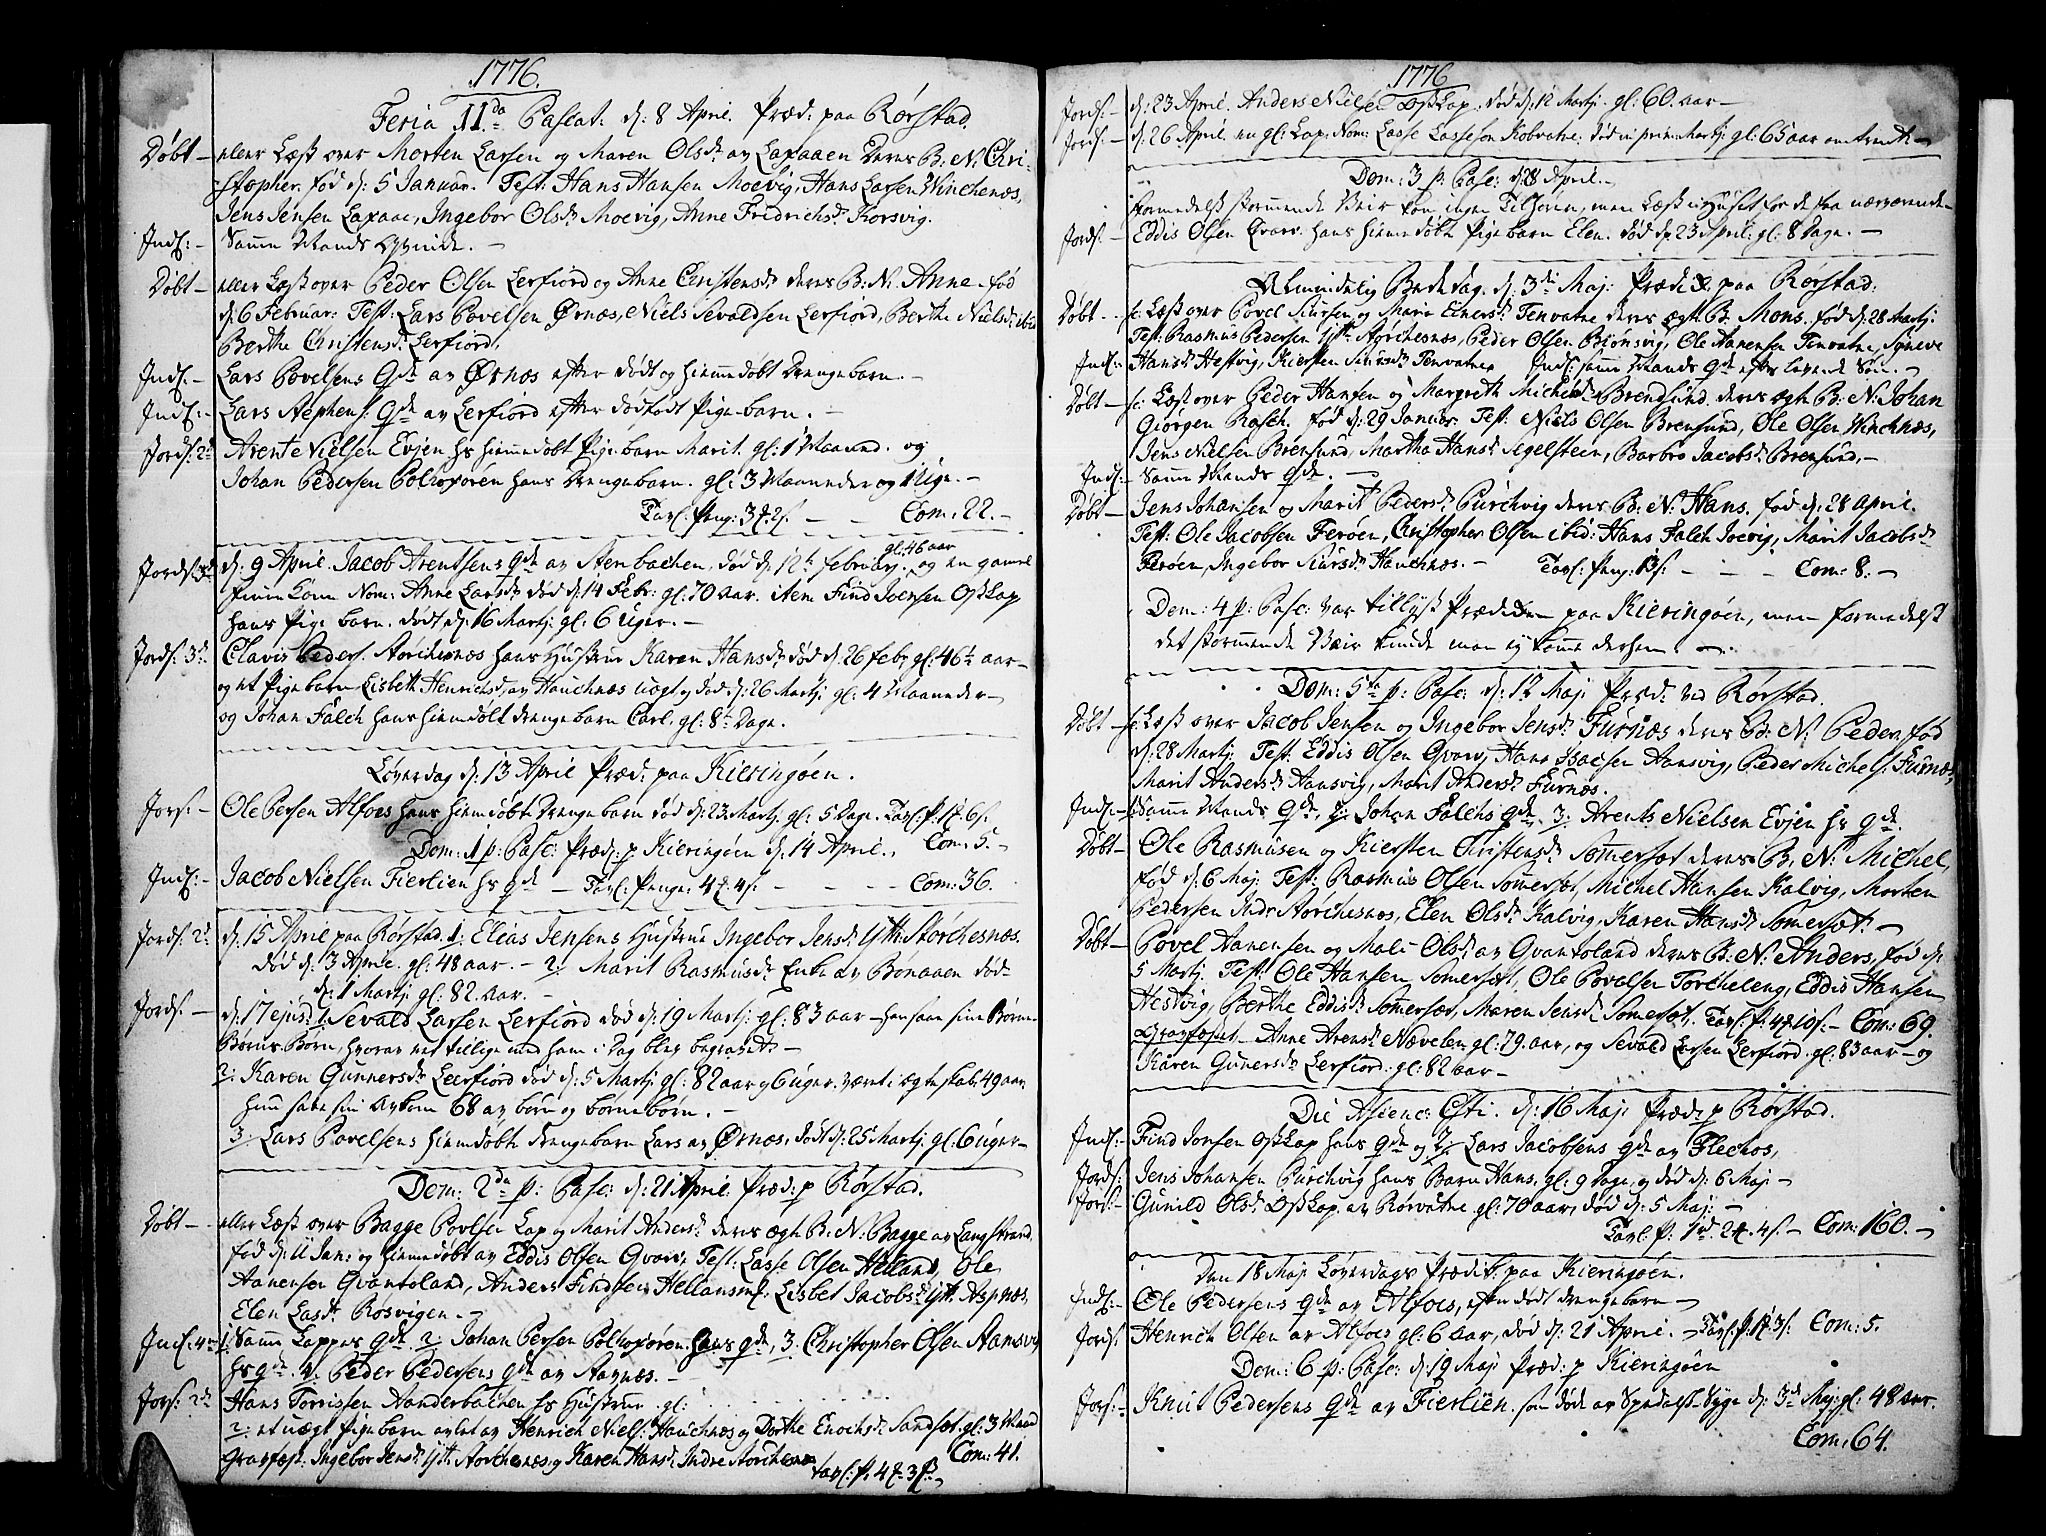 1776.
Feria II.da Pascat: d: 8 April. Præd: paa Rørstad.
Døbt – eller Læst over Morten Larsen og Maren Olsd: av Laxaaen Deres B: N: Chri-
stopher. fød d: 5 Januar. Test: Hans Hansen Moevig, Hans Larsen Winchenæs,
Jens Jensen Laxaae, Ingebor Olsd: Moevig, Anne Fridrichsd: Korsvig.
Ind: – Samme Mands
Døbt – eller Læst over Peder Olsen Lerfiord og Anne Christensd: deres B: N: Anne fød
d: 6 Februar: Test: Lars Povelsen Ørnæs, Niels Sevaldsen Lerfiord, Berthe Nielsd: ibid
Berthe Christensd: Lerfiord.
Ind: – Lars Povelsens Qde av Ørnæs efter dødt og hiemmedøbt Drengebarn. –
Ind: – Lars Stephens: Qde av Lerfiord efter dødfødt Pigebarn. –
Jords: 2: Arent Nielsen Evjen hs hiemmedøbt Pigebarn Marit. gl: 1 Maaned. og
Johan Pedersen hans Drengebarn. gl: 3 Maaneder og 1 Uge. –
Tavl: Peng: 3 2 s. – – Com: 22. –
gl: 46 aar
Jords: d: 9 April. Jacob Arentsens qde av Stenbachen, død d: 12te Februar. og en gamel
Nom: Anne Larsd: død d: 14 Febr: gl: 70 aar. item Find Joensen Øst Lap
hans Pige barn. dødt d: 16 Martj gl: 6 Uger. –
Jords: 3: Clavis Peders: Størchesnæs hans Hustrue Karen Hansd: død d: 26 Feb: gl: 46½ aar –
og et Pigebarn Lisbeth Henrichsd: av Hauchnæs død d: 26 Martj gl: 4 Maaneder –
og Johan Falch hans hiemdøbt drengebarn Carl. gl: 8te Dage.
Løverdag d: 13 April Præd: paa Kieringøen.
Jors: – Ole Persen Alfoes hans hiemdøbte Drengebarn død d: 23 Martj gl: 5 Dage. Tavl: P: 1 6 s.
Dom: 1 p: Pasc: Præd: p Kieringøen d: 14 April. Com: 5. –
Ind: – Jacob Nielsen Fierlien hs qde – Tavl: Penge 4 4 s. – – – Com: 36.
Jords: 2: d: 15 April paa Rørstad. 1: Elias Jensens Hustrue Ingebor Jensd: Ytt: Størchesnæs.
død d: 3 April. gl: 48 aar. – 2: Marit Rasmusd: Enke av Bønaaen død
d: 1 Martj gl: 82 aar. –
Jords: – d: 17 ejusd: 1: Sevald Larsen Lerfiord død d: 19 Martj gl: 83 aar – han saae sine Børne
Børns Børn, hvorav et tillige med ham i Dag blev begravet –
2: Karen Gunnersd: Leerfiord død d: 5 Martj gl: 82 aar og 6 uger. været i ægteskab: 49 aar
hun saae sin Avkom 68 av børn og børnebørn. –
3: Lars Povelsens hiemdøbte drengebarn Lars av Ørnæs, dødt d: 25 Martj gl: 6 uger –
Dom: 2da p: Pasc: d: 21 April. Præd: p Rørstad.
Døbt – eller Læst over Bagge Povlsen Lap og Marit Andersd: deres ægte B: N: Bagge av Langstrand.
fød d: 11 Jan: og hiemmedøbt av Eddis Olsen Qvarv, Test: Lasse Olsen Helland, Ole
Aanensen Qvantoland, Anders Findsen Lisbet Jacobsd: Ytt: Aspnæs,
Elen Lasd: Røsvigen. –
Ind: 4re 1: Samme Lappes qde 2: Johan Persen hans qde, 3. Christopher Olsen Aansvig
hs qde. 4: Peder Pedersens qde av Aagnæs. –
Jors: 2de Hans Torrissen hs Hustrue gl:
2: et uægt Pigebarn avlet av Henrich Niels: Hauchnæs og Dorthe Enochsd: Sandsøt gl: 3 Maan
Gravfæst: Ingebor Jensd: Ytt: Størchesnæs og Karen Hansd: Indre Størchesnæs Com: 41.
Tavl: P. 4 3 s
1776
Jords: – d: 23 April. Anders Nielsen Øst Lap. død d: 12 Martj. gl: 60. aar –
Jords: – d: 26 April en gl: Lap. Nom: Lasse Lassesen Kobvatne. død prim: Martj gl: 65 aar omtrendt –
Dom: 3 p: Pasc: d: 28 April. –
Formedelst stormende Veir kom ingen Tilhørere, men Læst i Huset for de faa nærværende –
Jords: – Eddis Olsen Qvarv. hans hiemmedøbte Pigebarn Elen. død d: 23 April: gl: 8 Dage. –
Almindelig Bededag. d: 3die Maj: Prædik: paa Rørstad.
Døbt – Læst over Povel Siursen og Marie Einersd: Tenvatne deres ægte B. Mons. fød d: 28 Martj:
Test: Rasmus Pedersen Ytt: Størchesnæs, Peder Olsen Brønsvig, Ole Aanensen Tenvatne, Synneve
Ind: Hansd: Hestvig, Kiersten Siursd: Tenvatne Ind: samme Mands qde efter levende Søn. –
Døbt – Læst over Peder Hansen og Margreth Michelsd: Brensund. deres ægte B: N: Johan
Giørgen Rasch. fød d: 29 Januar. Test: Niels Olsen Brensund, Ole Olsen Winchnæs,
Jens Nielsen Brensund, Martha Hansd: Segelsteen, Barbro Jacobsd: Brensund, –
Ind: – Samme Mands qde. –
Døbt – Jens Johansen og Marit Pedersd: Purchvig deres B: N: Hans. fød d: 28 April.
Test: Ole Jacobsen Ferøen, Christopher Olsen ibid: Hans Falch Joevig, Marit Jacobsd:
Ferøen, Ingebor Siursd: Hauchnæs. – Tavl: Peng: 13 s. – – – Com: 8. –
Dom: 4 p: Pasc: var tillyst Prædiken paa Kieringøen, men formedelst
det stormende Veir kunde man ej komme derhen. –
Dom: 5te p: Pasc: d: 12 Maj. Præd: ved Rørstad.
Døbt – Læst over Jacob Jensen og Ingebor Jensd: Furnæs deres B: N: Peder, fød
d: 28 Martj. Test: Eddis Olsen Qvarv, Hans Isacsen Aansvig, Peder Michels: Furnæs,
Marit Andersd: Aansvig, Marit Andersd: Furnæs.
Ind: – 1 Samme Mands Qde, 2: Johan Falchs qde. 3: Arent Nielsen Evjen hs qde.
Døbt – Ole Rasmusen og Kiersten Christensd: Somersæt deres B. N: Michel,
fød d: 6 Maj. Test: Rasmus Olsen Somersæt, Michel Hansen Kalvig, Morten
Pedersen Indr Størchesnæs, Elen Olsd: Kalvig, Karen Hansd: Somersæt. –
Døbt – Povel Aanensen og Mali Olsd: av Qvantoland deres B: N: Anders, fød d:
5 Martj. Test: Ole Hansen Somersætt, Ole Povelsen Torcheleng, Eddis Hansen
Hestvig, Berthe Eddisd: Somersæt, Maren Jensd: Somersæt. Tavl: P: 4 10 s. – Com: 69.
Gravfæstet – Anne Arensd: Nævelen gl: 79. aar, og Sevald Larsen Lerfiord. gl: 83 aar – og
Karen Gunersd: Lerfiord. gl: 82 aar –
Die Ascenc: Csti. d: 16 Maj: Præd: p Rørstad.
Ind: – Find Jonsen Øst Lap hans qde og 2: Lars Jacobsens qde av Flechos,
Jords: Jens Johansen Purchvig hans Barn Hans. gl: 9 Dage, død d: 6 Maj –
Jord: – Gunild Olsd: Øst Lap. av Rørvatne gl: 70 aar, død d: 5 Maj: –
Tavl: P: 1 rd. 2 4 s. – Com: 160. –
Den 18 Maj Løverdags Prædik: paa Kieringøen.
Ind: – Ole Pedersens qde av Alfoes, efter dødt drengebarn –
Jords: Henrich Olsen av Alfoes gl: 6 aar, død d: 21 April. – Tavl: P: 1 3 s: Com: 5.
Dom: 6 p: Pasc: d: 19 Maj: Præd: p Kieringøen
Jors: – Knut Pedersens qde av Fierlien. som døde av Spedalsk Syge d: 3de Maj: gl: 48 aar.
Com: 64.